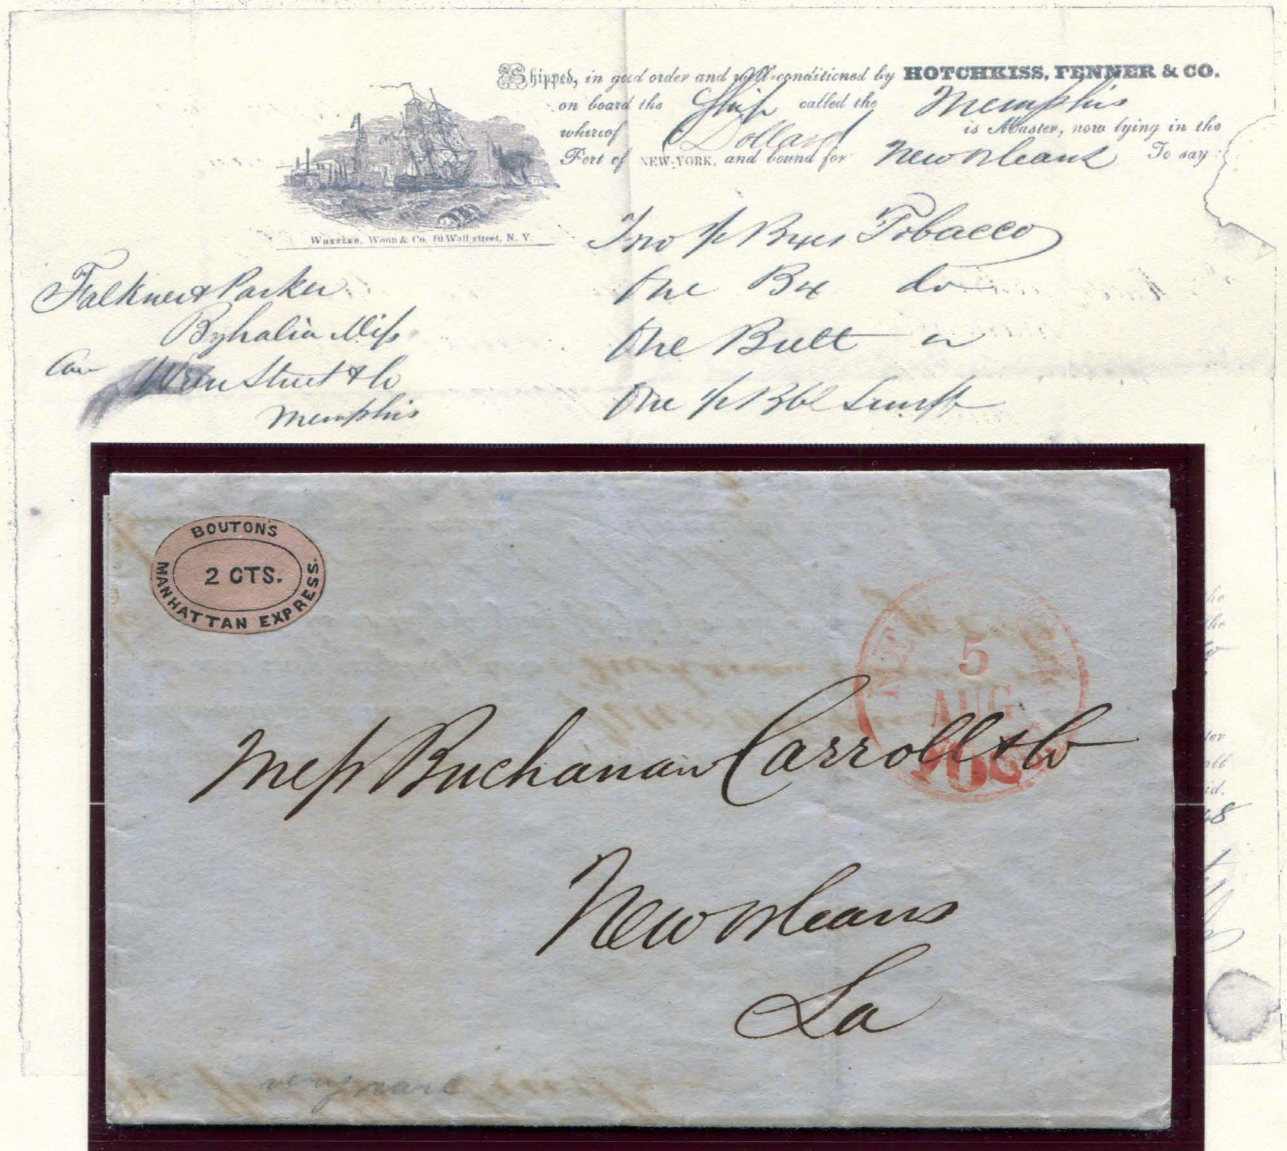 Shipped, in good order and well-conditioned by HOTCHKISS, FENNER & CO.
on board the Ship called the Memphis
whereof Dollard is Master, now lying in the
Port of NEW-YORK, and bound for New Orleans To say:
WHEELER, WOOD & Co. Wall street, N. Y.
Two ½ Bxs Tobacco
One Bx do
One Butt
One ½ Bbl Snuff
Falkner & Parker
Byhalia Miss
Care Wren Street & Co
Memphis
BOUTON'S
2 CTS.
MANHATTAN EXPRESS.
NE
5
AUG
10 cts
Mess Buchanan Carroll & Co
New Orleans
La
very rare
he
the
ter
id.
48